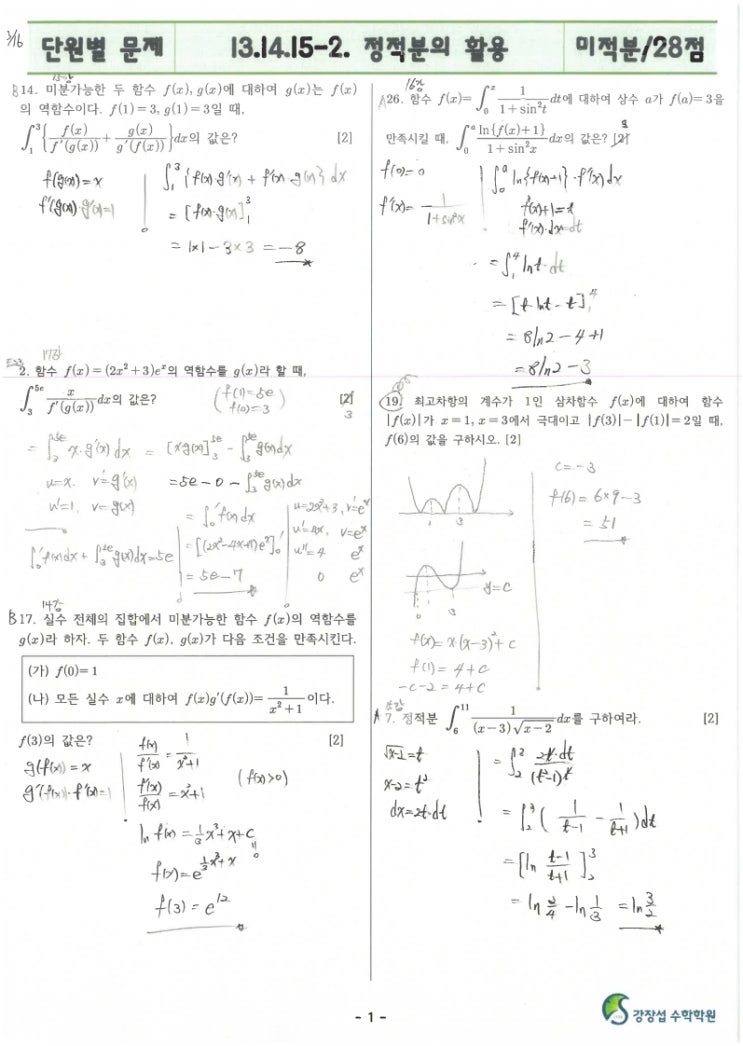 3/16
단원별 문제
13.14.15-2. 정적분의 활용
미적분/28점
B14. 미분가능한 두 함수 f(x), g(x)에 대하여 g(x)는 f(x)
의 역함수이다. f(1)=3, g(1)=3일 때,
∫₁³{f(x)/f'(g(x)) + g(x)/f'... 
의 값은? [2]
f(g(x))=x
f'(g(x))·g'(x)=1
∫₁³{f(x)·g'(x) + f'(x)·g(x)}dx
= [f(x)·g(x)]₁³
= 1×1-3×3 = -8
17강
2. 함수 f(x)=(2x²+3)eˣ의 역함수를 g(x)라 할 때,
∫₃^{5e} x/f'(g(x)) dx의 값은? [2]
3
(f(1)=5e
f(0)=3)
= [x·g(x)]₃^{5e} - ∫₃^{5e} g(x)dx
u=x, v'=g'(x)
u'=1, v=g(x)
=5e-0-∫₃^{5e} g(x)dx
=∫₀¹f(x)dx
=[(2x²-4x+7)eˣ]₀¹
=5e-7
u=2x²+3, v'=eˣ
u'=4x, v=eˣ
u''=4 eˣ
0 eˣ
14강
B17. 실수 전체의 집합에서 미분가능한 함수 f(x)의 역함수를
g(x)라 하자. 두 함수 f(x), g(x)가 다음 조건을 만족시킨다.
(가) f(0)=1
(나) 모든 실수 x에 대하여 f(x)g'(f(x))=1/(x²+1)이다.
f(3)의 값은? [2]
g(f(x))=x
g'(f(x))·f'(x)=1
f(x)/f'(x)=1/(x²+1)
f'(x)/f(x)=x²+1
(f(x)>0)
ln f(x)=⅓x³+x+C
0
f(x)=e^{⅓x³+x}
f(3)=e¹²
16강
A26. 함수 f(x)=∫₀ˣ 1/(1+sin²t) dt에 대하여 상수 a가 f(a)=3을
만족시킬 때, ∫₀ᵃ ln{f(x)+1}/(1+sin²x) dx의 값은? [2]
3
f(0)=0
f'(x)=1/(1+sin²x)
∫₀ᵃ ln{f(x)+1}·f'(x)dx
f(x)+1=t
f'(x)·dx=dt
=∫₁⁴ ln t·dt
=[t ln t-t]₁⁴
=8ln2-4+1
=8ln2-3
19. 최고차항의 계수가 1인 삼차함수 f(x)에 대하여 함수
|f(x)|가 x=1, x=3에서 극대이고 |f(3)|-|f(1)|=2일 때,
f(6)의 값을 구하시오. [2]
1 3
y=C
f(x)=x·(x-3)²+C
f(1)=4+C
-C-2=4+C
C=-3
f(6)=6×9-3
=51
A7. 정적분 ∫₆¹¹ 1/((x-3)√(x-2)) dx를 구하여라. [2]
x-2=t²
dx=2t·dt
=∫₂³ 2t·dt/((t²-1)t)
=∫₂³(1/(t-1) - 1/(t+1))dt
=[ln (t-1)/(t+1)]₂³
=ln 2/4 - ln 1/3 = ln 3/2
- 1 -
강장섭 수학학원